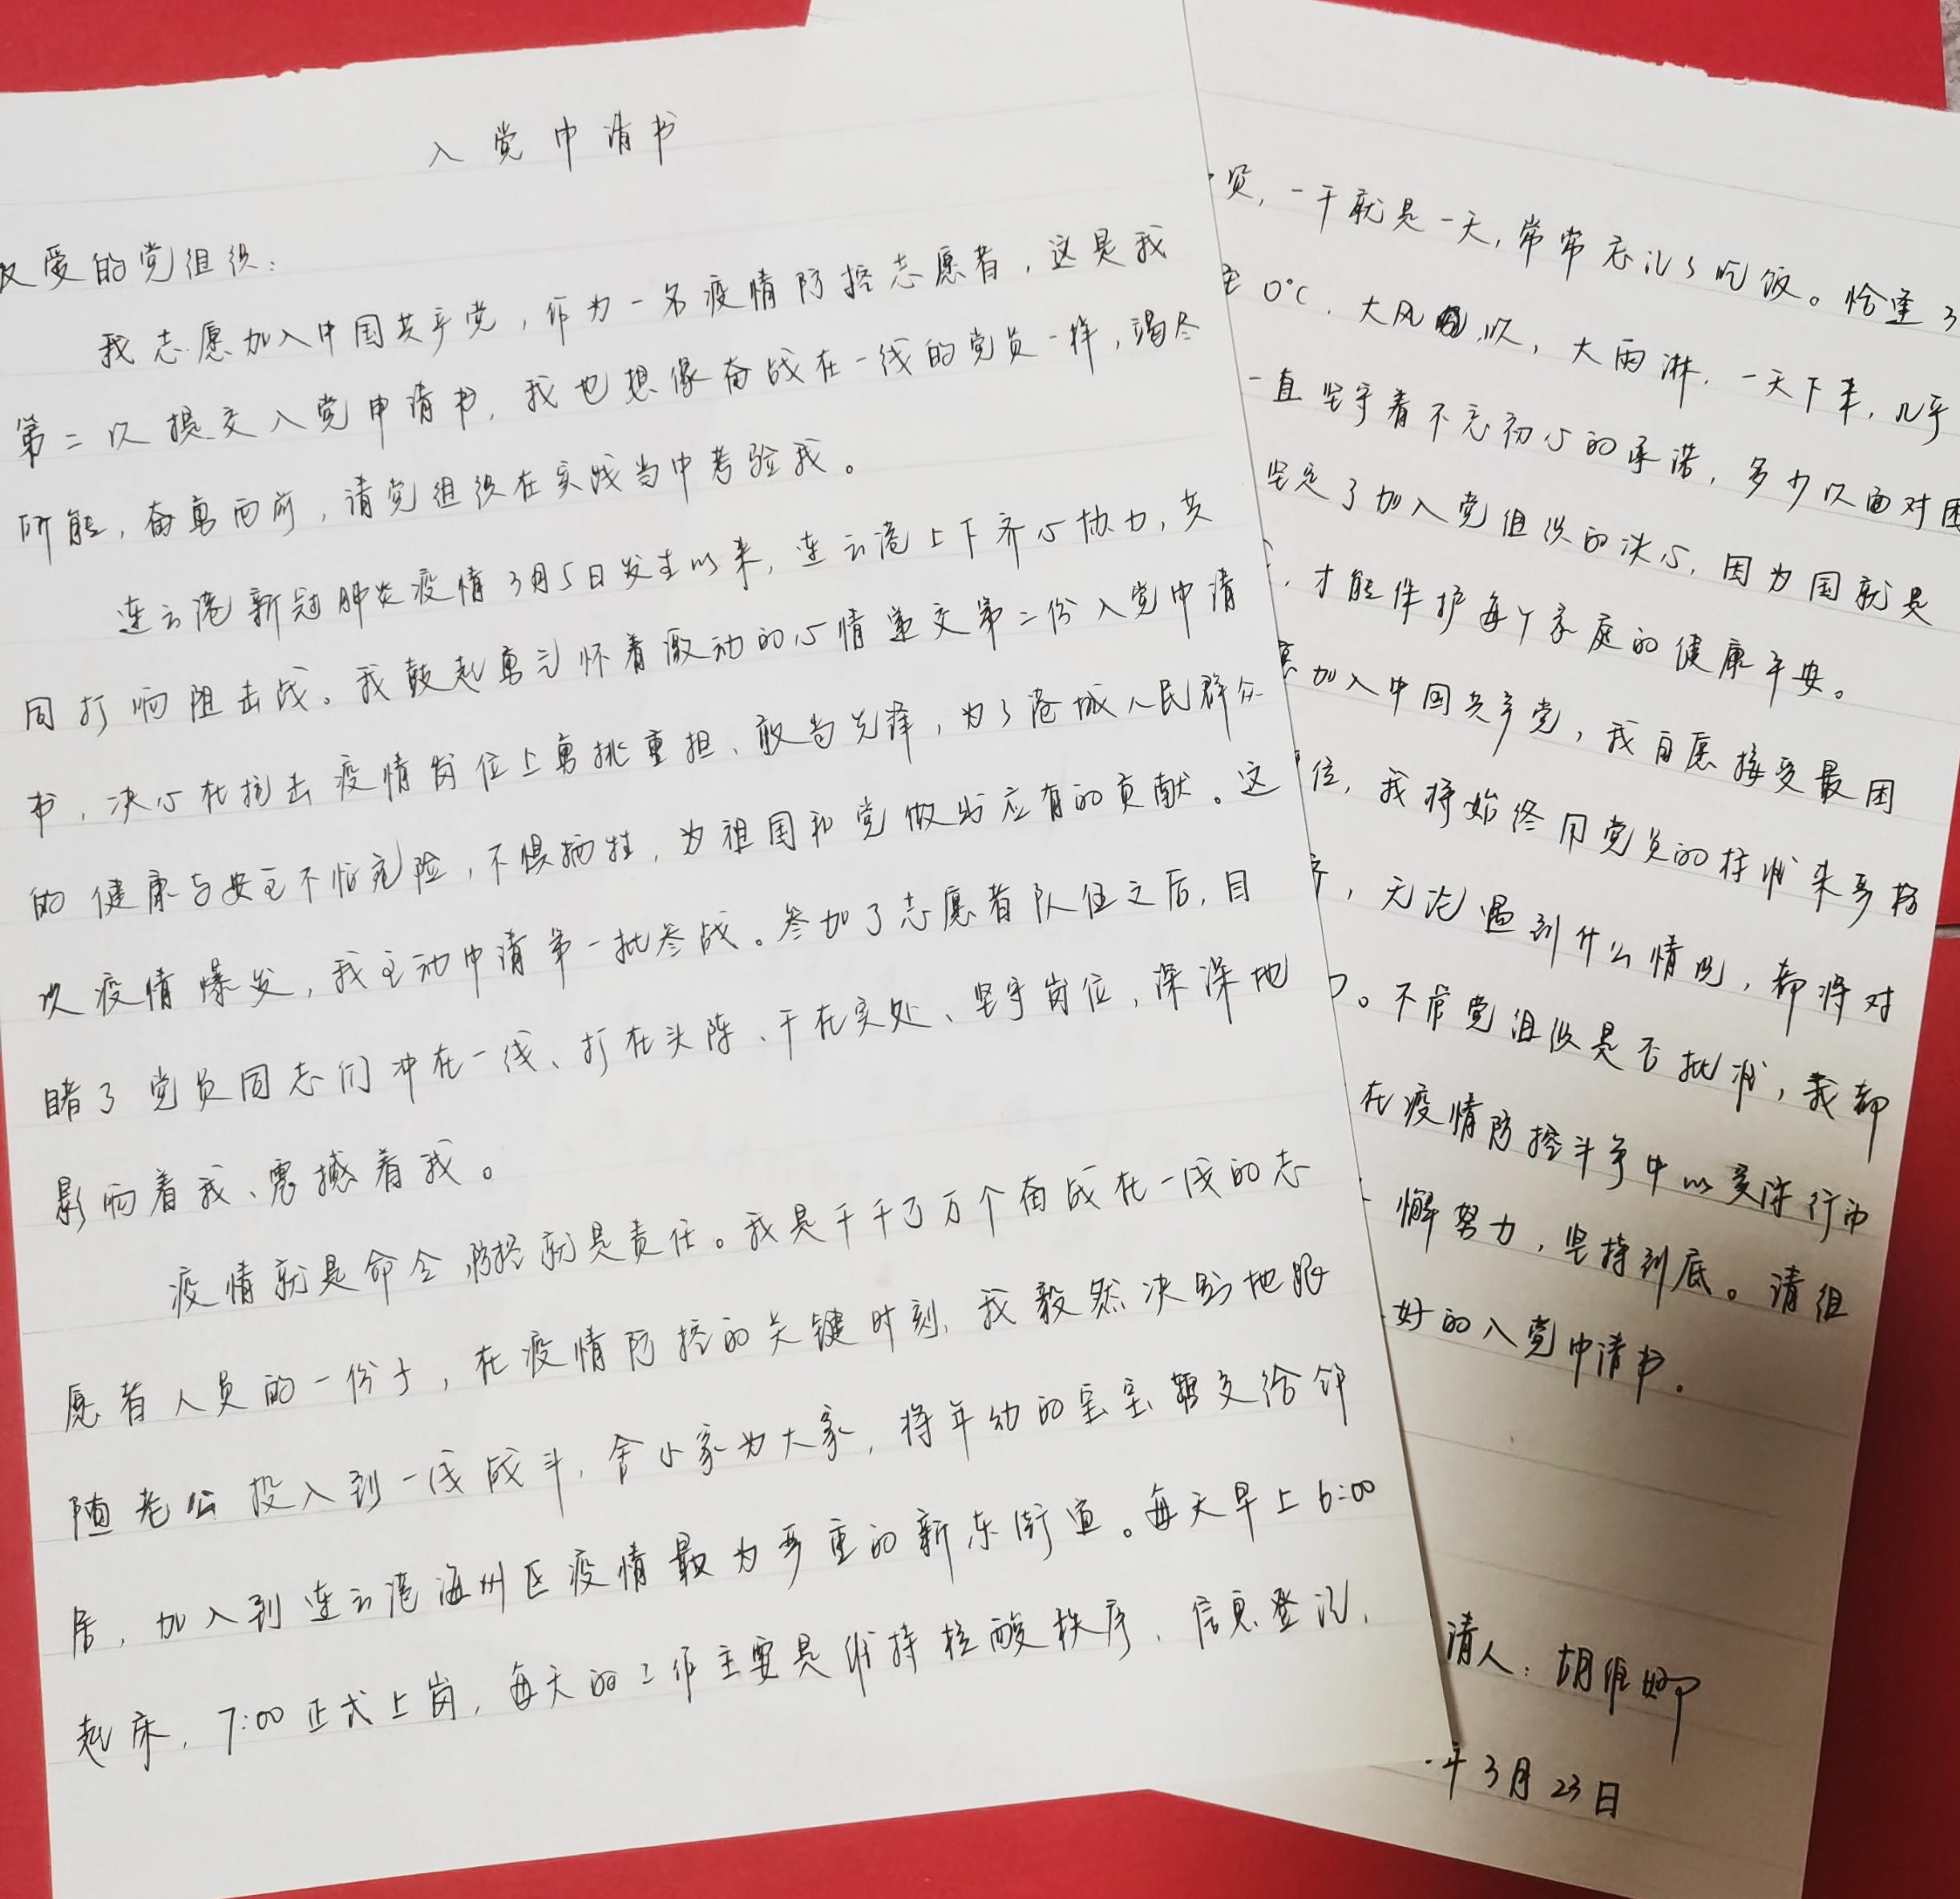 入党申请书
敬爱的党组织：
我志愿加入中国共产党，作为一名疫情防控志愿者，这是我
第二次提交入党申请书，我也想像奋战在一线的党员一样，竭尽
所能，奋勇而前，请党组织在实践当中考验我。
连云港新冠肺炎疫情3月5日发生以来，连云港上下齐心协力，共
同打响阻击战。我鼓起勇气怀着激动的心情递交第二份入党申请
书，决心在抗击疫情岗位上勇挑重担、敢当先锋，为了港城人民群众
的健康与安全不怕危险，不惧牺牲，为祖国和党做出应有的贡献。这
次疫情爆发，我主动申请第一批参战。参加了志愿者队伍之后，目
睹了党员同志们冲在一线、打在头阵、干在实处、坚守岗位，深深地
影响着我、震撼着我。
疫情就是命令，防控就是责任。我是千千万万个奋战在一线的志
愿者人员的一份子，在疫情防控的关键时刻，我毅然决然地跟
随老公投入到一线战斗，舍小家为大家，将年幼的宝宝转交给邻
居，加入到连云港海州区疫情最为严重的新东街道。每天早上6:00
起床，7:00正式上岗，每天的工作主要是维持核酸秩序、信息登记，
员，一干就是一天，常常忘记了吃饭。恰逢3
至0℃，大风吹，大雨淋，一天下来，几乎
一直坚守着不忘初心的承诺，多少次面对困
坚定了加入党组织的决心，因为国就是
，才能保护每个家庭的健康平安。
愿加入中国共产党，我自愿接受最困
位，我将始终用党员的标准来严格
，无论遇到什么情况，都将对
。不管党组织是否批准，我都
在疫情防控斗争中以实际行动
懈努力，坚持到底。请组
好的入党申请书。
请人：胡维娜
年3月23日